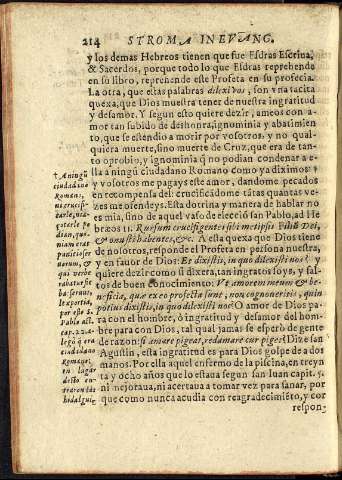 214 STROMA IN EVANG.
y los demas Hebreos tienen que fue Esdras Escriua,
& Sacerdos, porque todo lo que Esdras reprehende
en su libro, reprehende este Profeta en su profecia.
La otra, que estas palabras dilexi vos, son vna tacita
quexa, que Dios muestra tener de nuestra ingratitud
y desamor. Y segun esto quiere dezir, ameos con a-
mor tan subido de deshonra, ignominia y abatimien
to, que se estendio a morir por vosotros, y no qual-
quiera muerte, sino muerte de Cruz, que era de tan-
to oprobio, y ignominia q̃ no podian condenar a e-
lla a ningũ ciudadano Romano como ya diximos: †
y vosotros me pagays este amor, dandome pecados
en recompensa del: crucificãdome tãtas quantas ve-
zes me ofendeys. Esta dotrina y manera de hablar no
es mia, sino de aquel vaso de eleccio san Pablo, ad He
bræos 11. Rursum crucifigentes sibi metipsis Filiũ Dei,
& ostentui habentes, &c. A esta quexa que Dios tiene
de nosotros, respõde el Profeta en persona nuestra,
y en fauor de Dios: Et dixistis, in quo dilexisti nos? y
quiere dezir como si dixera, tan ingratos soys, y fal-
tos de buen conocimiento: Vt amorem meum & be-
neficia, quæ ex eo profecta sunt, non cognoueritis, quin
potius dixistis, in quo dilexisti nos? O amor de Dios pa-
ra con el hombre, ò ingratitud y desamor del hom-
bre para con Dios, tal qual jamas se esperò de gente
de razon: si amare piget, redamare cur piget? Dize san
Agustin, esta ingratitud es para Dios golpe de a dos
manos. Por ella aquel enfermo de la piscina, en treyn
ta y ocho años que lo estaua segun san Iuan capit. 5.
ni mejoraua, ni acertaua a tomar vez para sanar, por
que como nunca acudia con reagradecimiẽto, y cor
respon-
† A ningũ
ciudadano
Romano,
ni crucifi-
carle, ni a-
çotarle po
dian, quo-
niam erat
punitio ser
uorum, &
qui verbe
rabatur ste
ba seruus,
& ex patria,
por esto S.
Pablo act.
cap. 22. a-
legò q̃ era
ciudadano
Romano,
en lugar
desto en-
tre
hidalguia